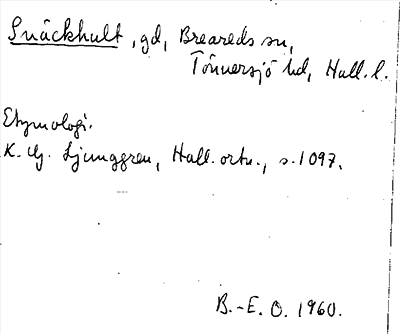 Snäckhult, gd, Breareds sn,
Tönnersjö hd, Hall. l.
Etymologi.
K. G. Ljunggren, Hall. ortn., s. 1097.
B.-E. O. 1960.